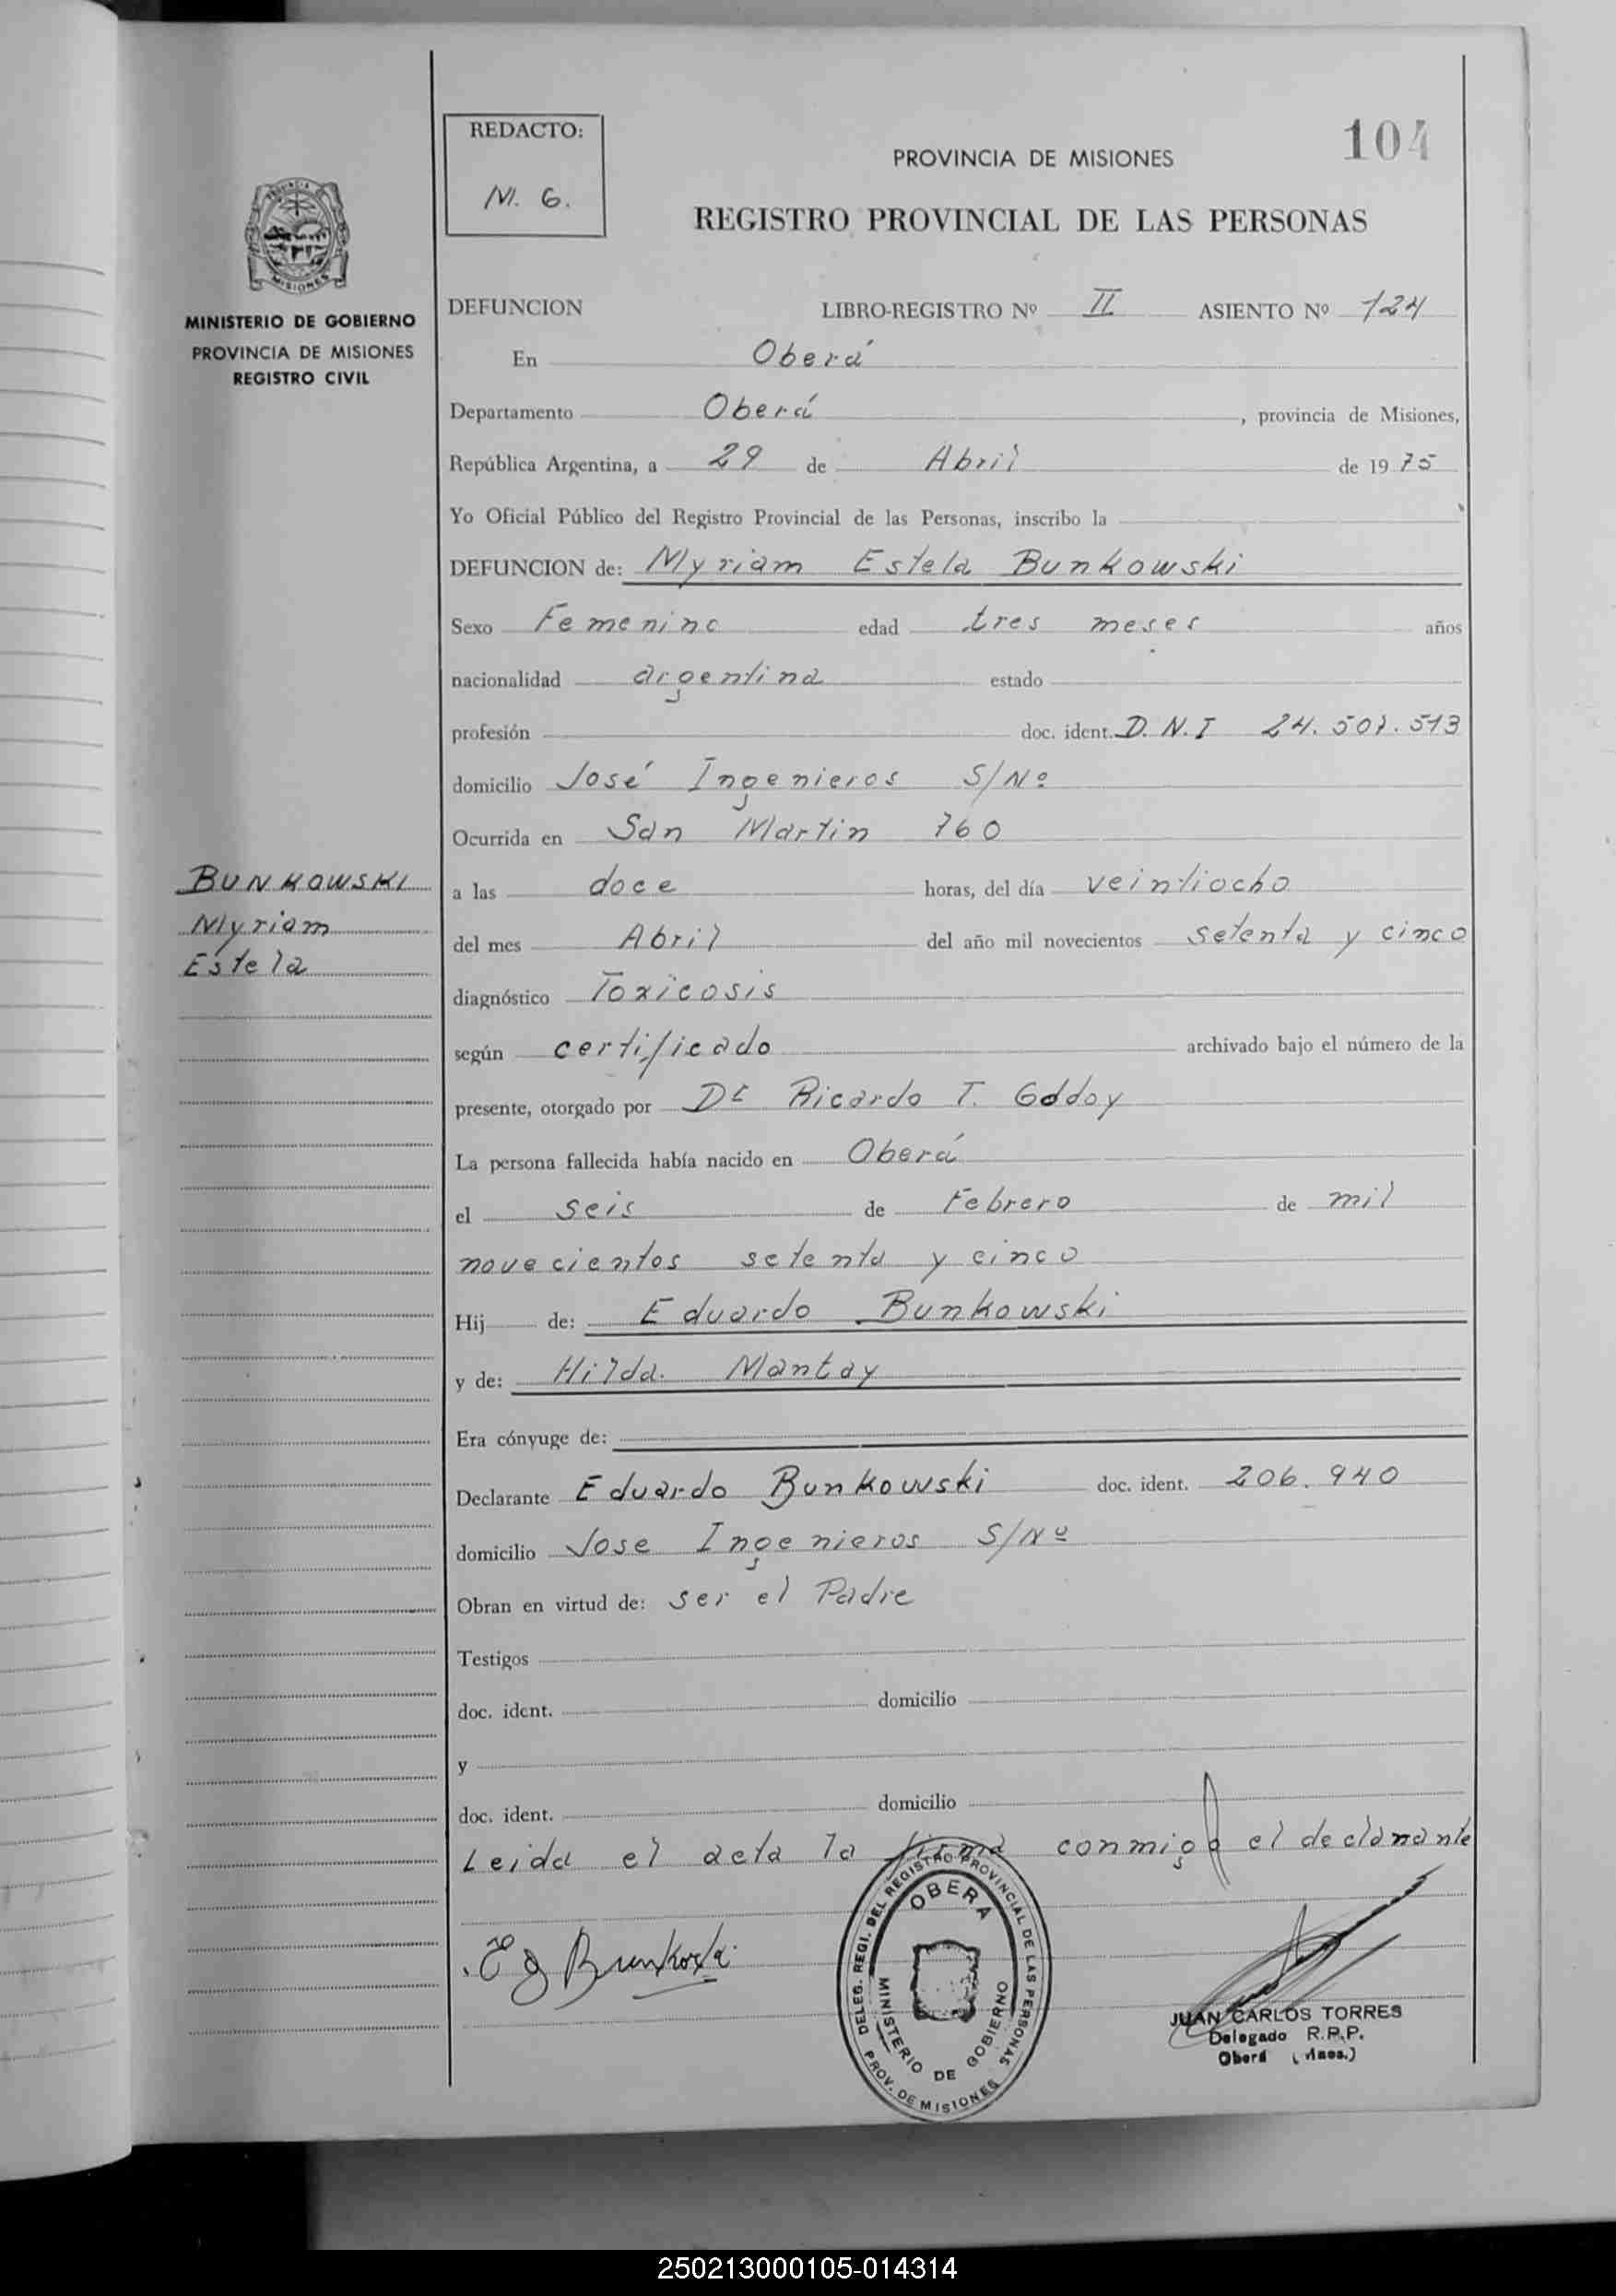 104
REDACTO:
M. G.
PROVINCIA DE MISIONES
REGISTRO PROVINCIAL DE LAS PERSONAS
PROVINCIA DE
MISIONES
MINISTERIO DE GOBIERNO
PROVINCIA DE MISIONES
REGISTRO CIVIL
DEFUNCION LIBRO-REGISTRO Nº II ASIENTO Nº 124
En Oberá
Departamento Oberá , provincia de Misiones,
República Argentina, a 29 de Abril de 1975
Yo Oficial Público del Registro Provincial de las Personas, inscribo la
DEFUNCION de: Myriam Estela Bunkowski
Sexo Femenino edad tres meses años
nacionalidad argentina estado
profesión doc. ident. D.N.I 24.507.513
domicilio José Ingenieros S/Nº
Ocurrida en San Martin 760
BUNKOWSKI
Myriam
Estela
a las doce horas, del día veintiocho
del mes Abril del año mil novecientos setenta y cinco
diagnóstico Toxicosis
según certificado archivado bajo el número de la
presente, otorgado por Dr Ricardo T. Godoy
La persona fallecida había nacido en Oberá
el seis de Febrero de mil
novecientos setenta y cinco
Hij de: Eduardo Bunkowski
y de: Hilda Mantay
Era cónyuge de:
Declarante Eduardo Bunkowski doc. ident. 206.940
domicilio Jose Ingenieros S/Nº
Obran en virtud de: ser el Padre
Testigos
doc. ident. domicilio
y
doc. ident. domicilio
Leida el acta la firma conmigo el declarante
DELEG. REGI. DEL REGISTRO PROVINCIAL DE LAS PERSONAS
OBERA
MINISTERIO DE GOBIERNO
PROV. DE MISIONES
JUAN CARLOS TORRES
Delegado R.P.P.
Oberá (Mnes.)
250213000105-014314